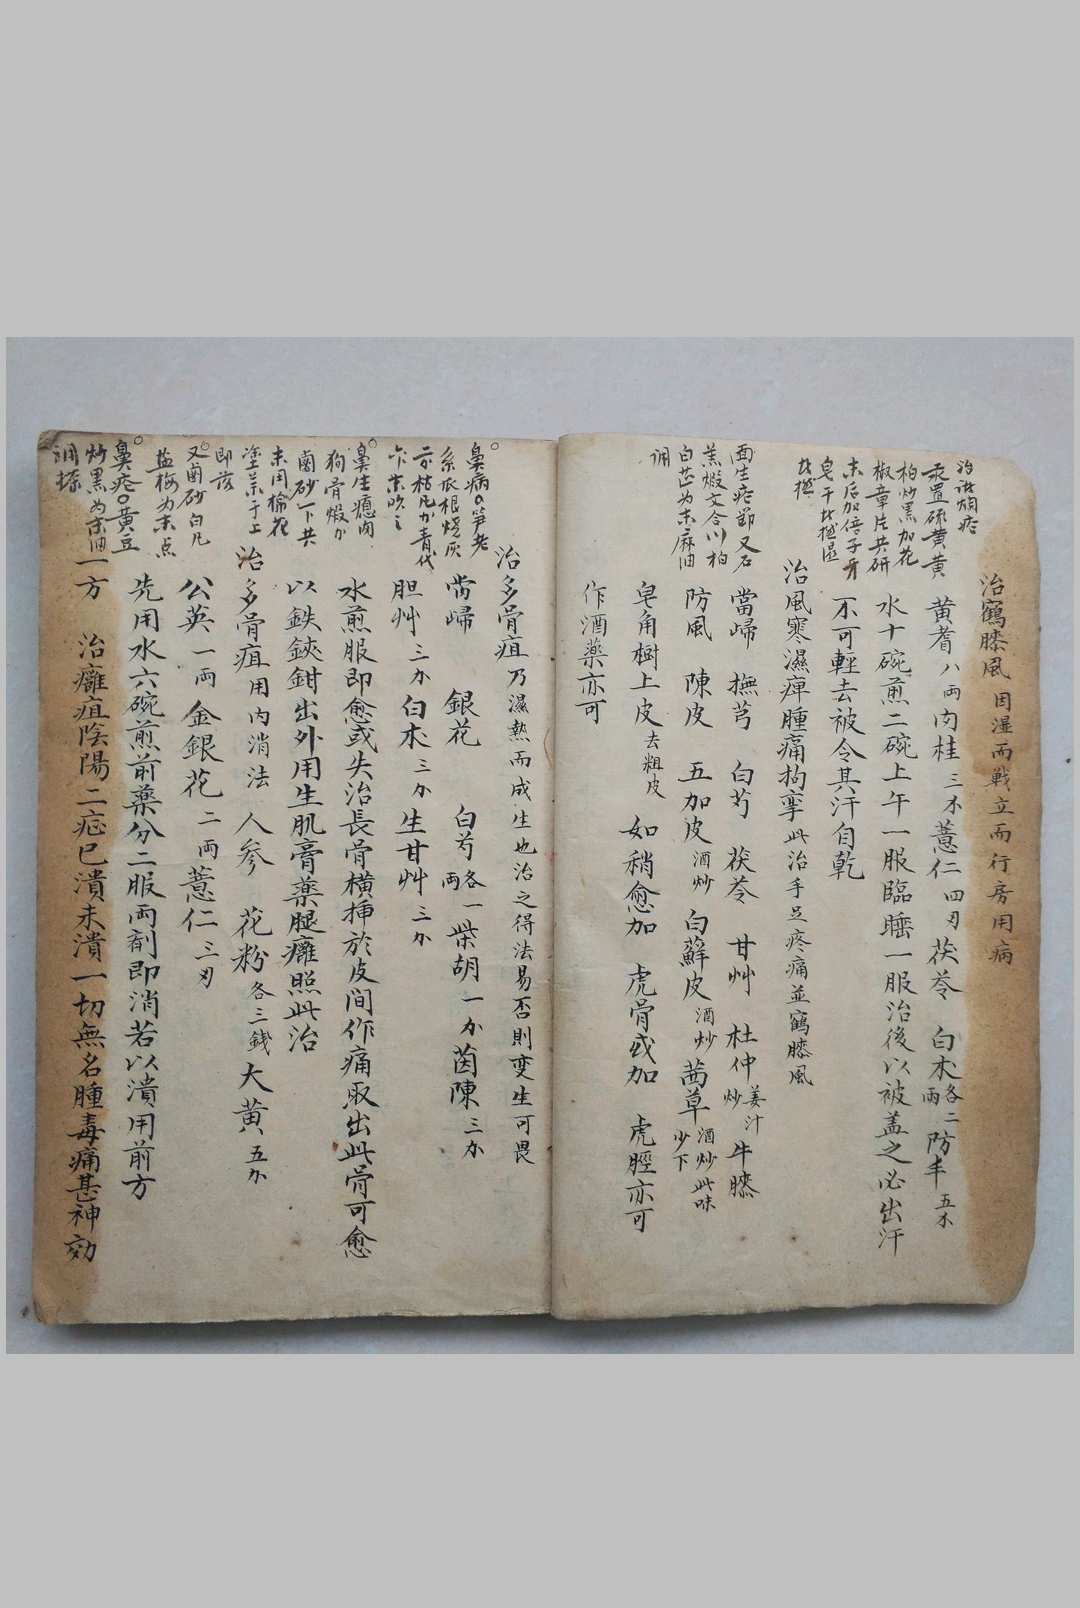 治鶴膝風 因湿而戰立而行房用病
黃耆八両肉桂三 薏仁四刄茯苓 白术各二両防丰五
水十碗煎二碗上午一服臨睡一服治後以被盖之必出汗
不可輕去被令其汗自乾
治風寒濕痺腫痛拘攣此治手足疼痛並鶴膝風
當歸 撫芎 白芍 茯苓 甘艸 杜仲姜汁炒 牛膝
防風 陳皮 五加皮酒炒 白蘚皮酒炒 茜草酒炒此味少下
皂角樹上皮去粗皮 如稍愈加 虎骨或加 虎脛亦可
作酒藥亦可
炒黑加花
椒章片共研
末后加倍子牙
皂干
面生疮節又石
羔煅文合川柏
白芷为末麻油
调
治多骨疽乃濕熱而成生也治之得法易否則变生可畏
當歸 銀花 白芍各一両柴胡一 茵陳三
胆艸三 白术三 生甘艸三
水煎服即愈或失治長骨橫挿於皮间作痛取出此骨可愈
以鉄鋏鉗出外用生肌膏藥腿癰照此治
治多骨疽用内消法 人参 花粉各三錢大黄五
公英一両金銀花二両薏仁三刄
先用水六碗煎前藥分二服両剤即消若以潰用前方
一方 治癰疽陰陽二症巳潰未潰一切無名腫毒痛甚神効
鼻病○笋老
系瓜根燒灰
枯凡 青代
末吹之
鼻生瘜肉
狗骨煅
鹵砂一下共
末用棉花
塗末于上
即落
又鹵砂白凡
盐梅为末点
鼻疮○黄豆
炒黑为末油
调搽